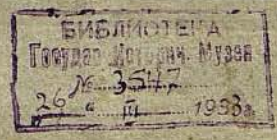 БИБЛИОТЕКА
Государ. Историч. Музея
№ 3547
26 " III